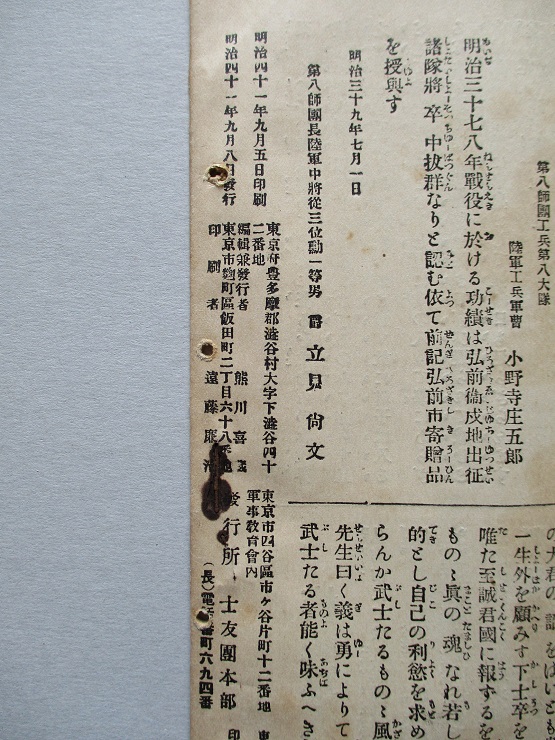 第八師團工兵第八大隊
陸軍工兵軍曹 小野寺庄五郎
明治三十七八年戰役に於ける功績は弘前衞戍地出征
諸隊將卒中拔群なりと認む依て前記弘前市寄贈品
を授與す
明治三十九年七月一日
第八師團長陸軍中將從三位勳一等男爵 立見尙文
明治四十一年九月五日印刷
明治四十一年九月八日發行
東京府豊多摩郡澁谷村大字下澁谷四十
二番地
編輯兼發行者 熊川喜
東京市麴町區飯田町二丁目六十八番地
印刷者 遠藤
の大君の
一生外を顧みす下士卒を
唯た至誠君國に報するを
ものゝ眞の魂なれ若し
的とし自己の利慾を求め
らんか武士たるものゝ風
先生曰く義は勇によりて
武士たる者能く味ふへき
東京市四谷區市ヶ谷片町十二番地
軍事敎育會內
發行所 士友團本部
(長)電話番町六九四番
東
印